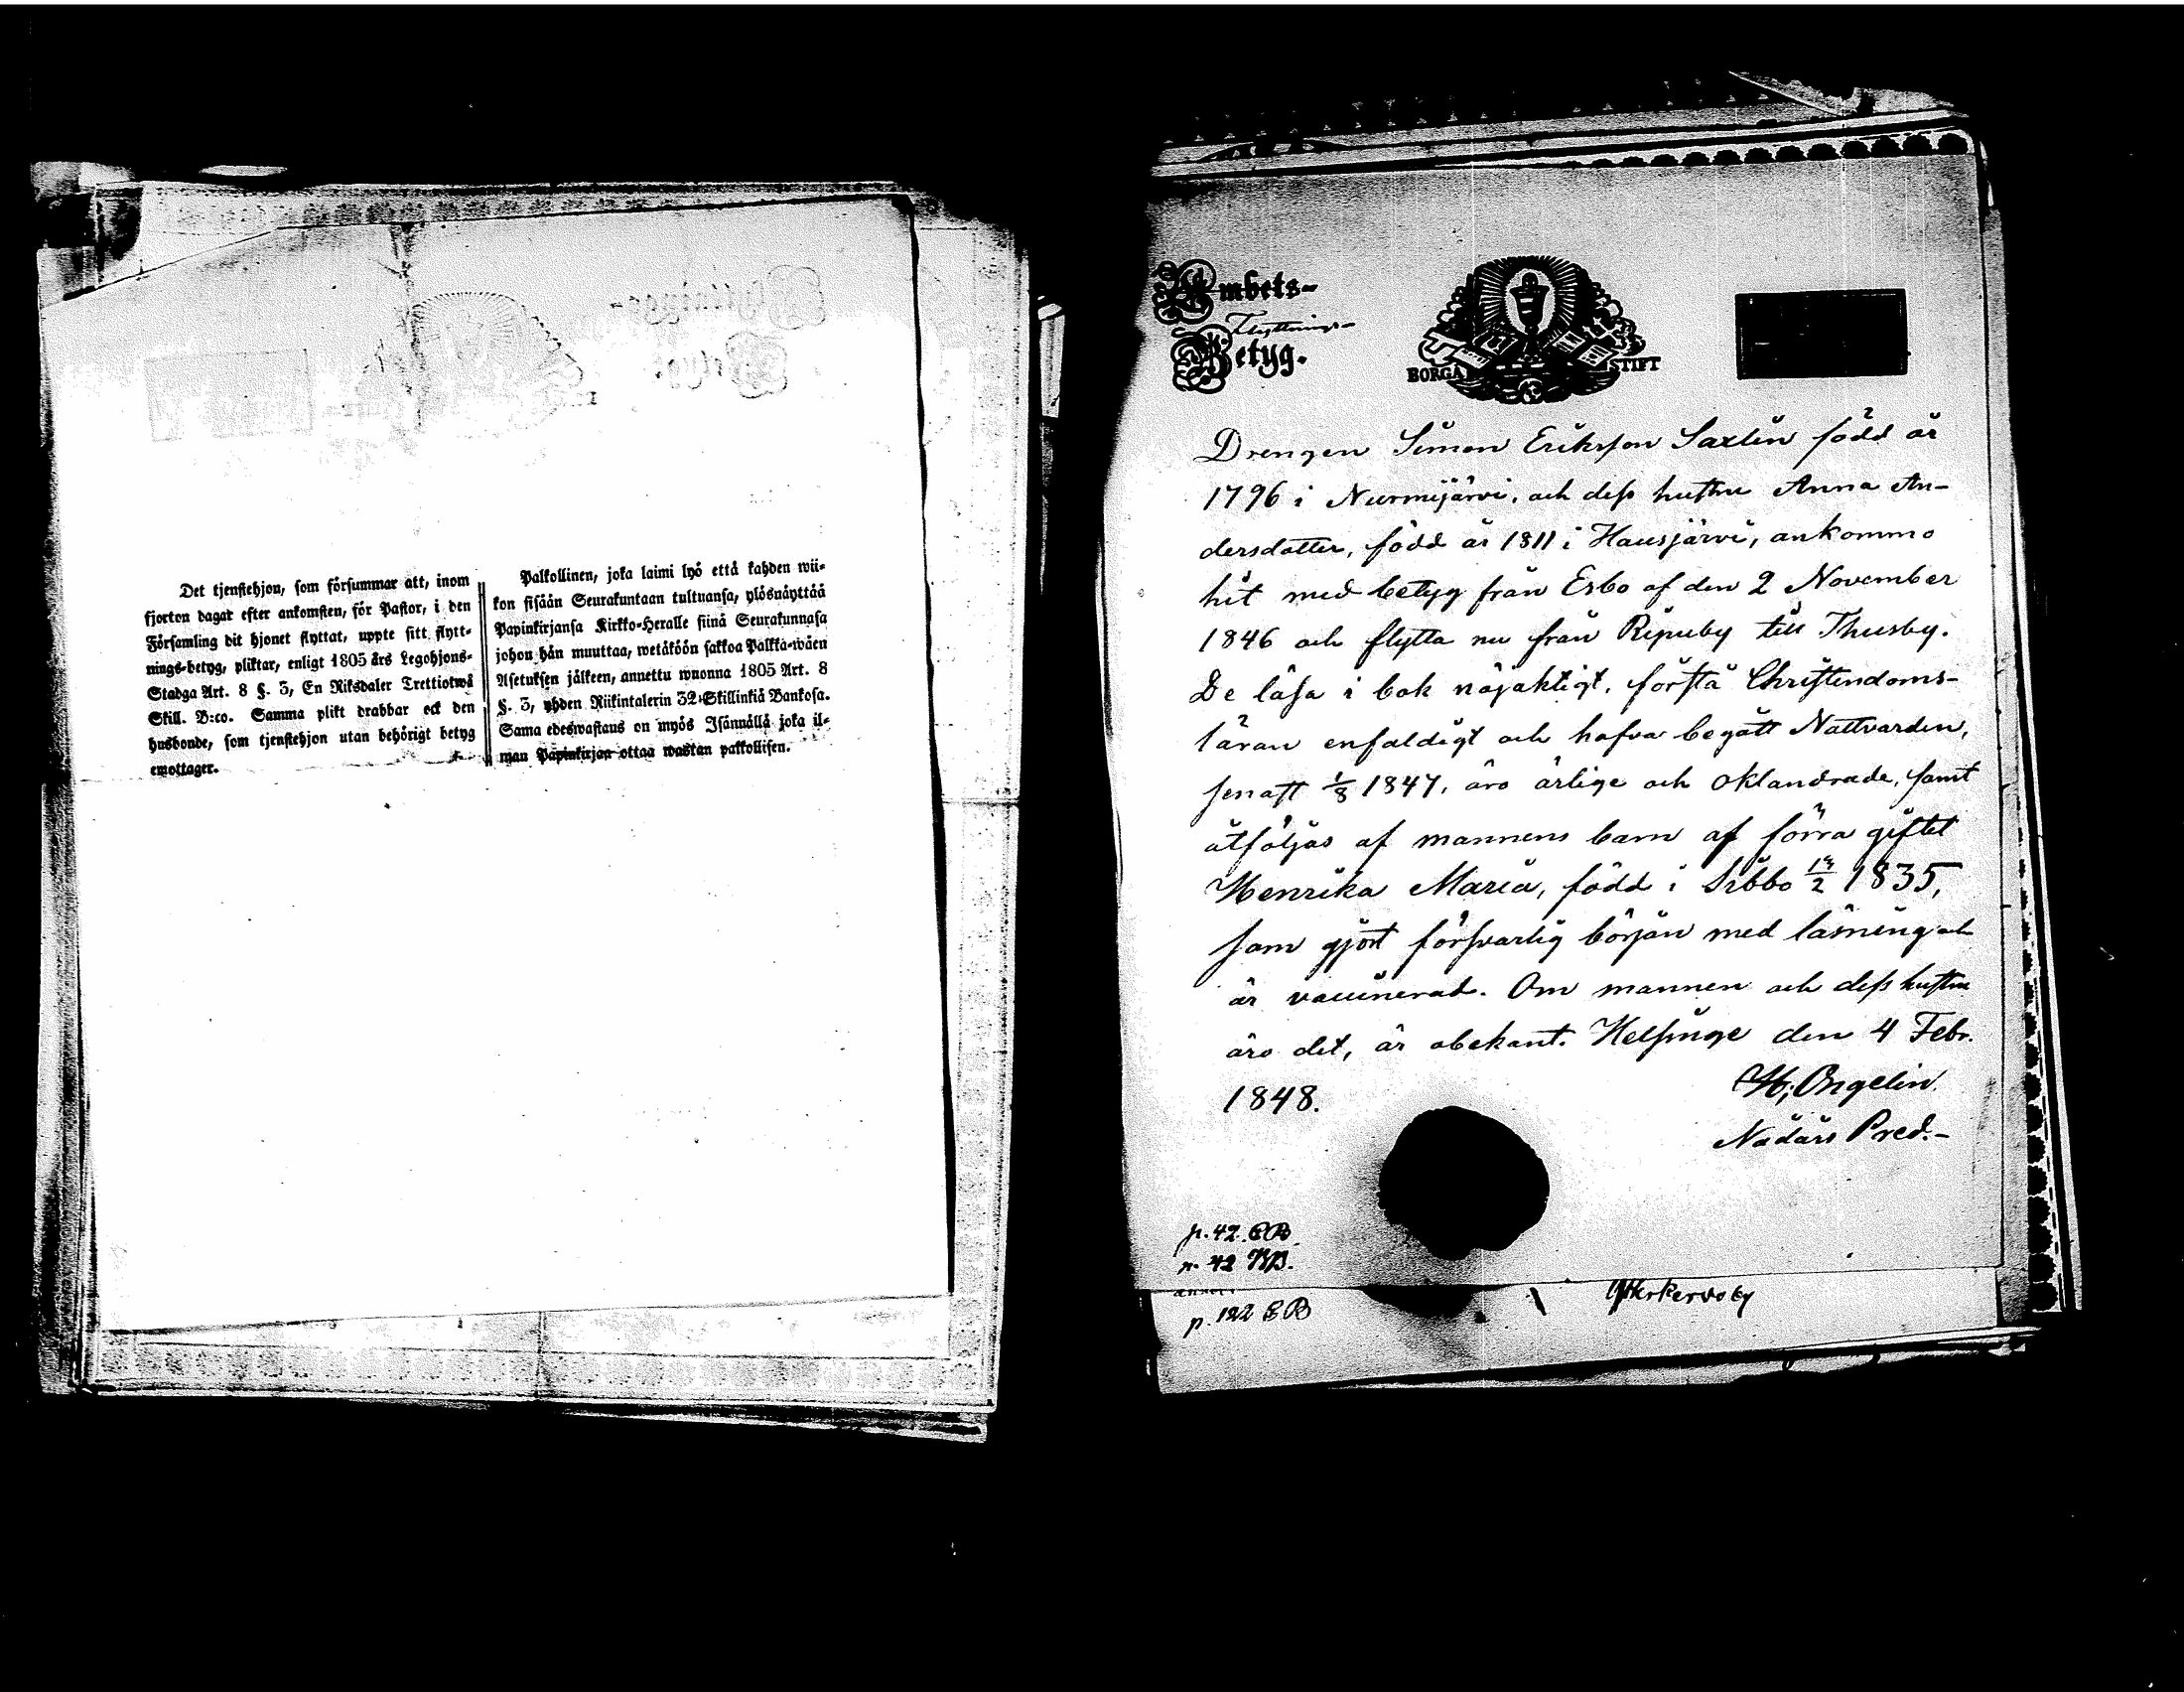 Det tjenstehjon, som försummar att, inom
fjorton dagar efter ankomsten, för Pastor, i den
Församling dit hjonet flyttat, uppte sitt flytt-
nings-betyg, pliktar, enligt 1805 års Legohjons-
Stadga Art. 8 §. 3, En Riksdaler Trettiotwå
Skill. B:co. Samma plikt drabbar ock den
husbonde, som tjenstehjon utan behörigt betyg
emottager.
Palkollinen, joka laimi lyö että kahden wii-
kon sisään Seurakuntaan tultuansa, ylösnäyttää
Papinkirjansa Kirkko-Heralle siinä Seurakunnasa
johon hän muuttaa, wetäköön sakkoa Palkka-wäen
Asetuksen jälkeen, annettu wuonna 1805 Art. 8
§. 3, yhden Riikintalerin 32 Skillinkiä Bankosa.
Sama edeswastaus on myös Isännällä joka il-
man Papinkirjan ottaa wastan palkollisen.
Ambets-
Flyttnings-
Betyg.
BORGÅ STIFT
Drengen Simon Eriksson Saxlin född år
1796 i Nurmijärvi, och dess hustru Anna An-
dersdotter, född år 1811 i Hausjärvi, ankommo
hit med betyg från Esbo af den 2 November
1846 och flytta nu från Ripuby till Thusby.
De läsa i bok nöjaktigt, förstå Christendoms-
läran enfaldigt och hafva begått Nattvarden,
senast 1/8 1847, äro ärlige och oklandrade, samt
åtföljas af mannens barn af förra giftet
Henrika Maria, född i Sibbo 1835,
som gjort försvarlig början med läsning och
är vaccinerad. Om mannen och dess hustru
äro det, är obekant. Helsinge den 4 Febr.
1848.
H; Ongelin.
Nådårs Pred.-
p. 42 CB
p. 42 KB.
p. 122 CB